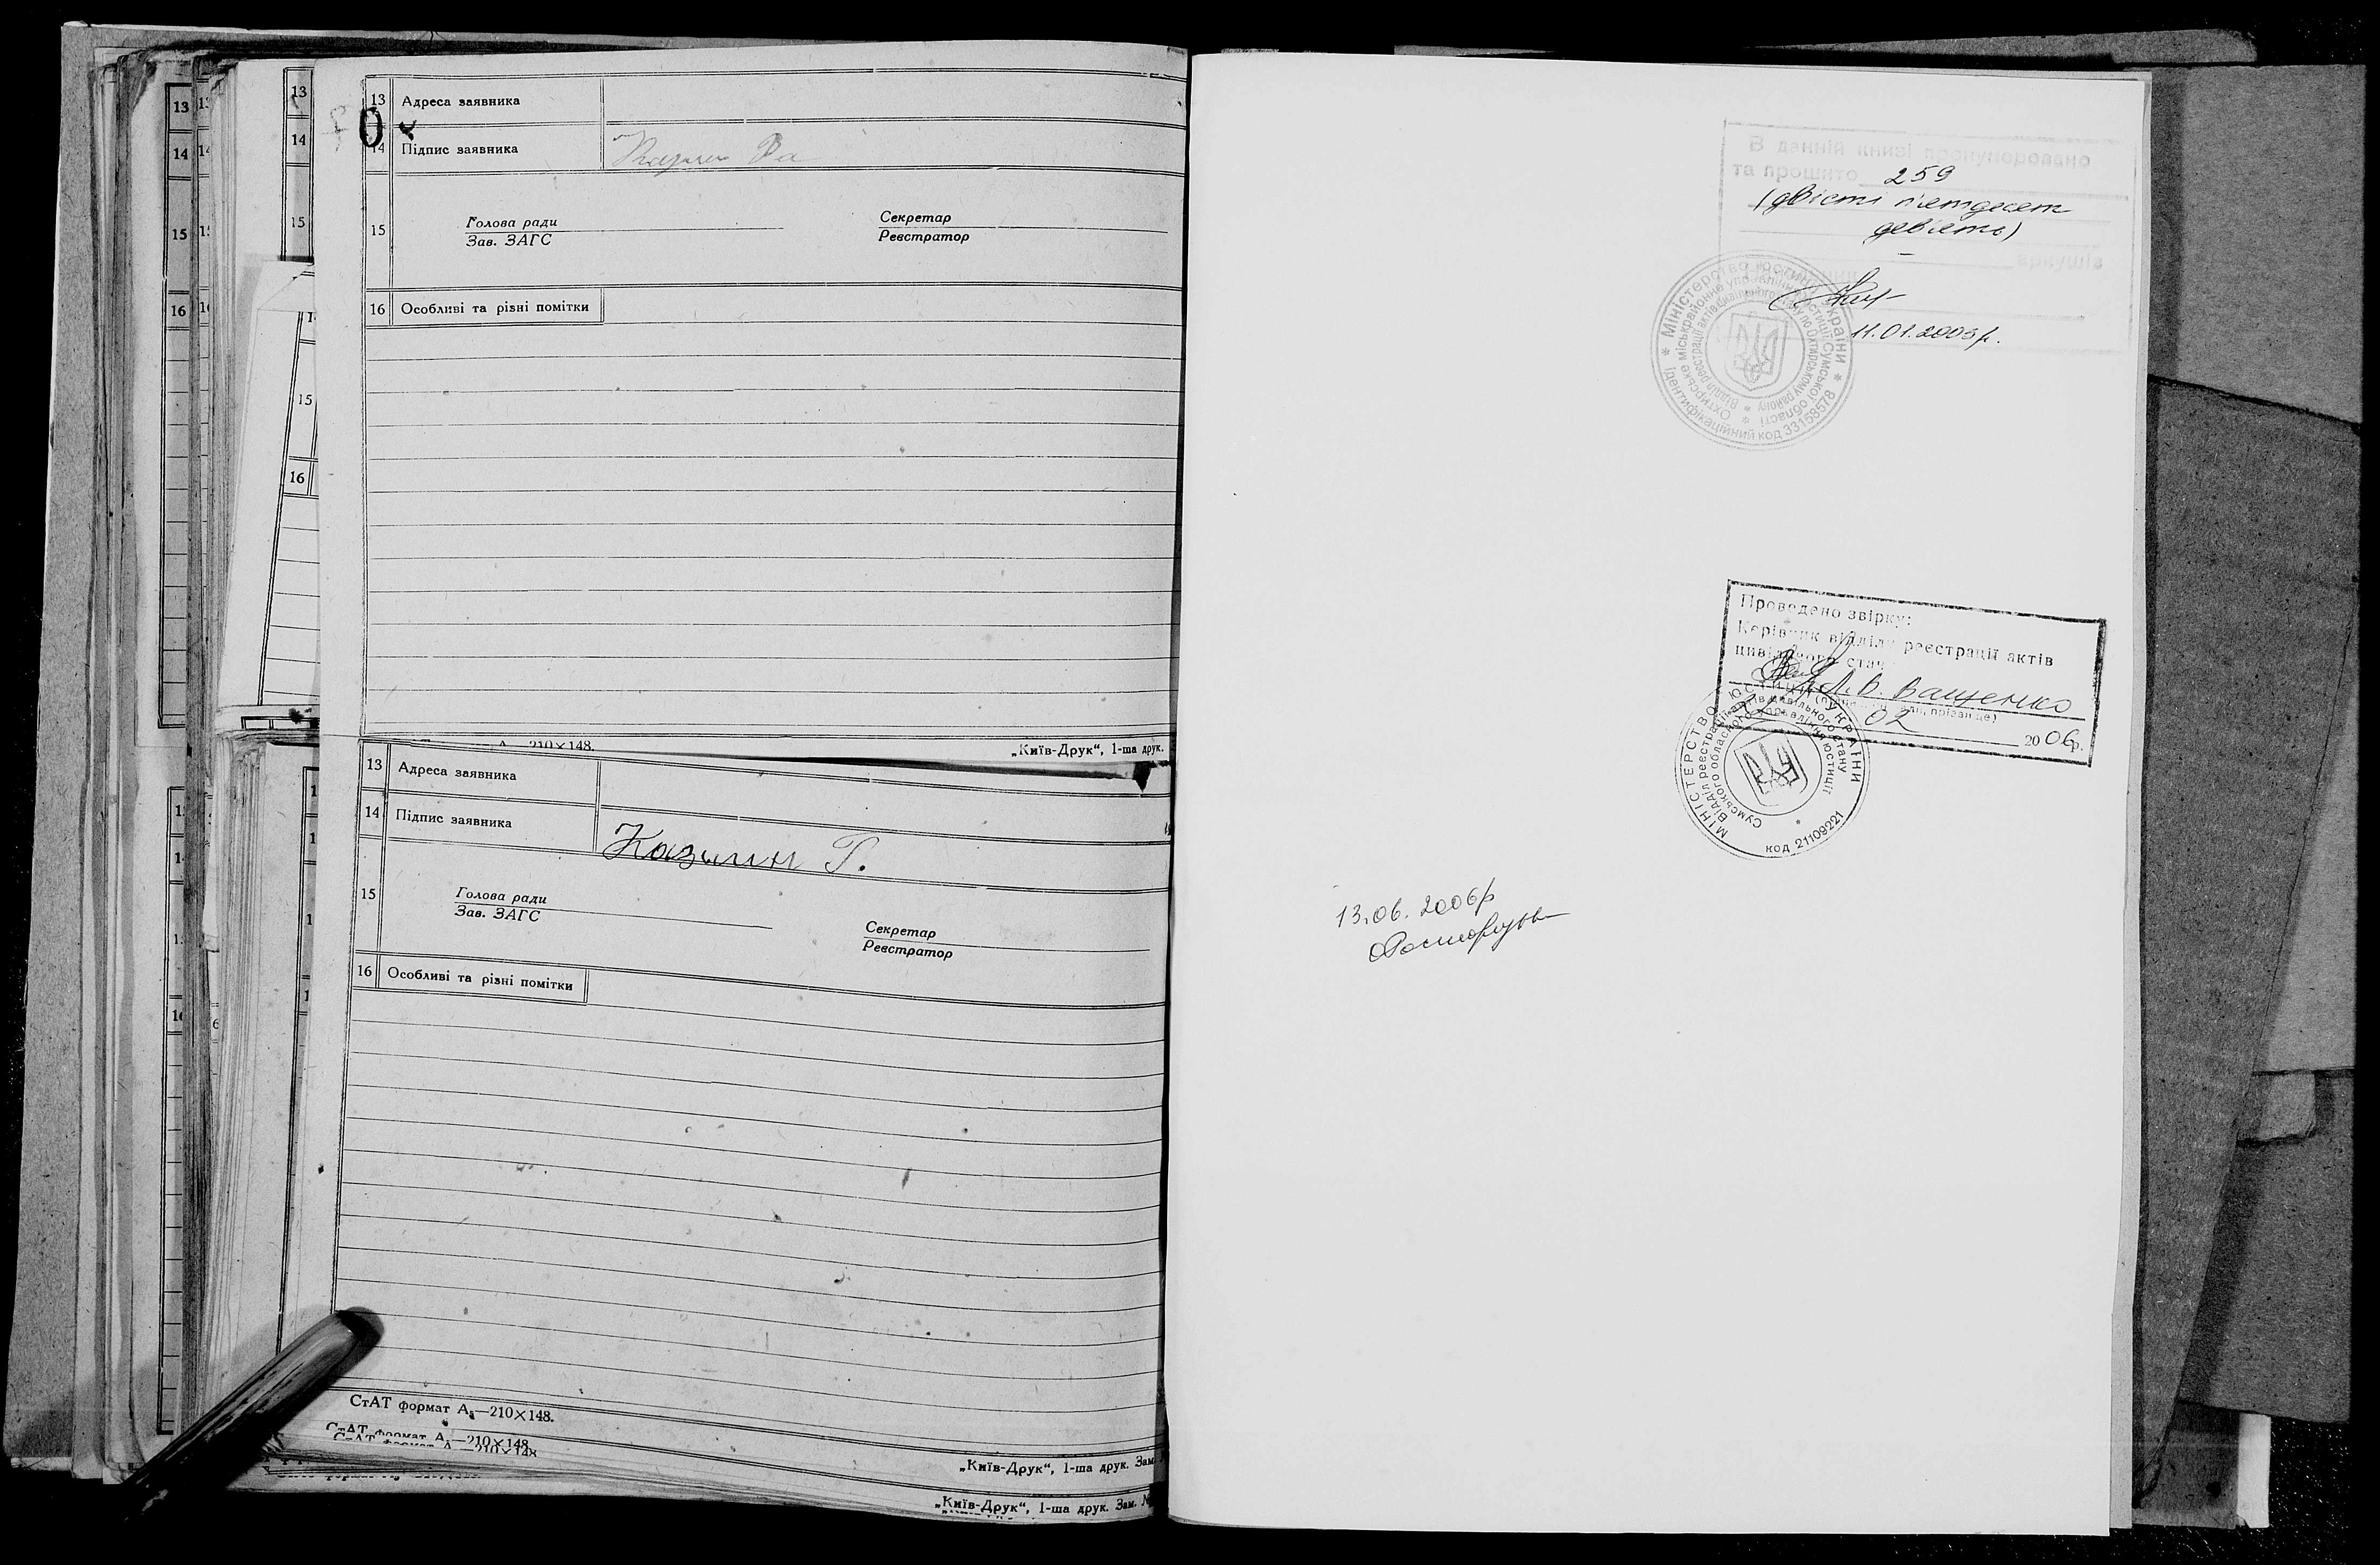 13 Адреса заявника
14 Підпис заявника
15 Голова ради
Зав. ЗАГС
Секретар
Реєстратор
16 Особливі та різні помітки
210×148.
„Київ-Друк“, 1-ша друк.
13 Адреса заявника
14 Підпис заявника Казимин Г.
15 Голова ради
Зав. ЗАГС
Секретар
Реєстратор
16 Особливі та різні помітки
СтАТ формат А₅—210×148.
СтАТ формат А —210×148
СтАТ формат А —210×148
„Київ-Друк“, 1-ша друк. Зам.
„Київ-Друк“, 1-ша друк. Зам. №
13
14
15
16
13
14
15
16
15
16
В данній книзі пронумеровано
та прошито 259
(двісті п'ятдесят
дев'ять)
аркушів
11.01.2003р.
* Міністерство юстиції України *
Ідентифікаційний код 33158578
Охтирське міськрайонне управління юстиції Сумської області *
Відділ реєстрації актів цивільного стану по Охтирському району *
Проведено звірку:
Керівник відділу реєстрації актів
цивільного стану
Л.В. Ващенко
прізвище)
02 2006р.
МІНІСТЕРСТВО ЮСТИЦІЇ УКРАЇНИ
Відділ реєстрації актів цивільного стану
Сумського обласного управління юстиції
* код 21109221
13.06.2006р